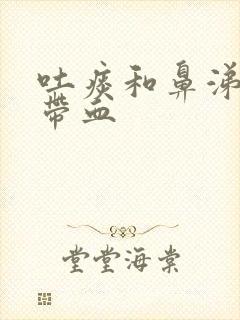 吐痰和鼻涕
带血
堂堂海棠